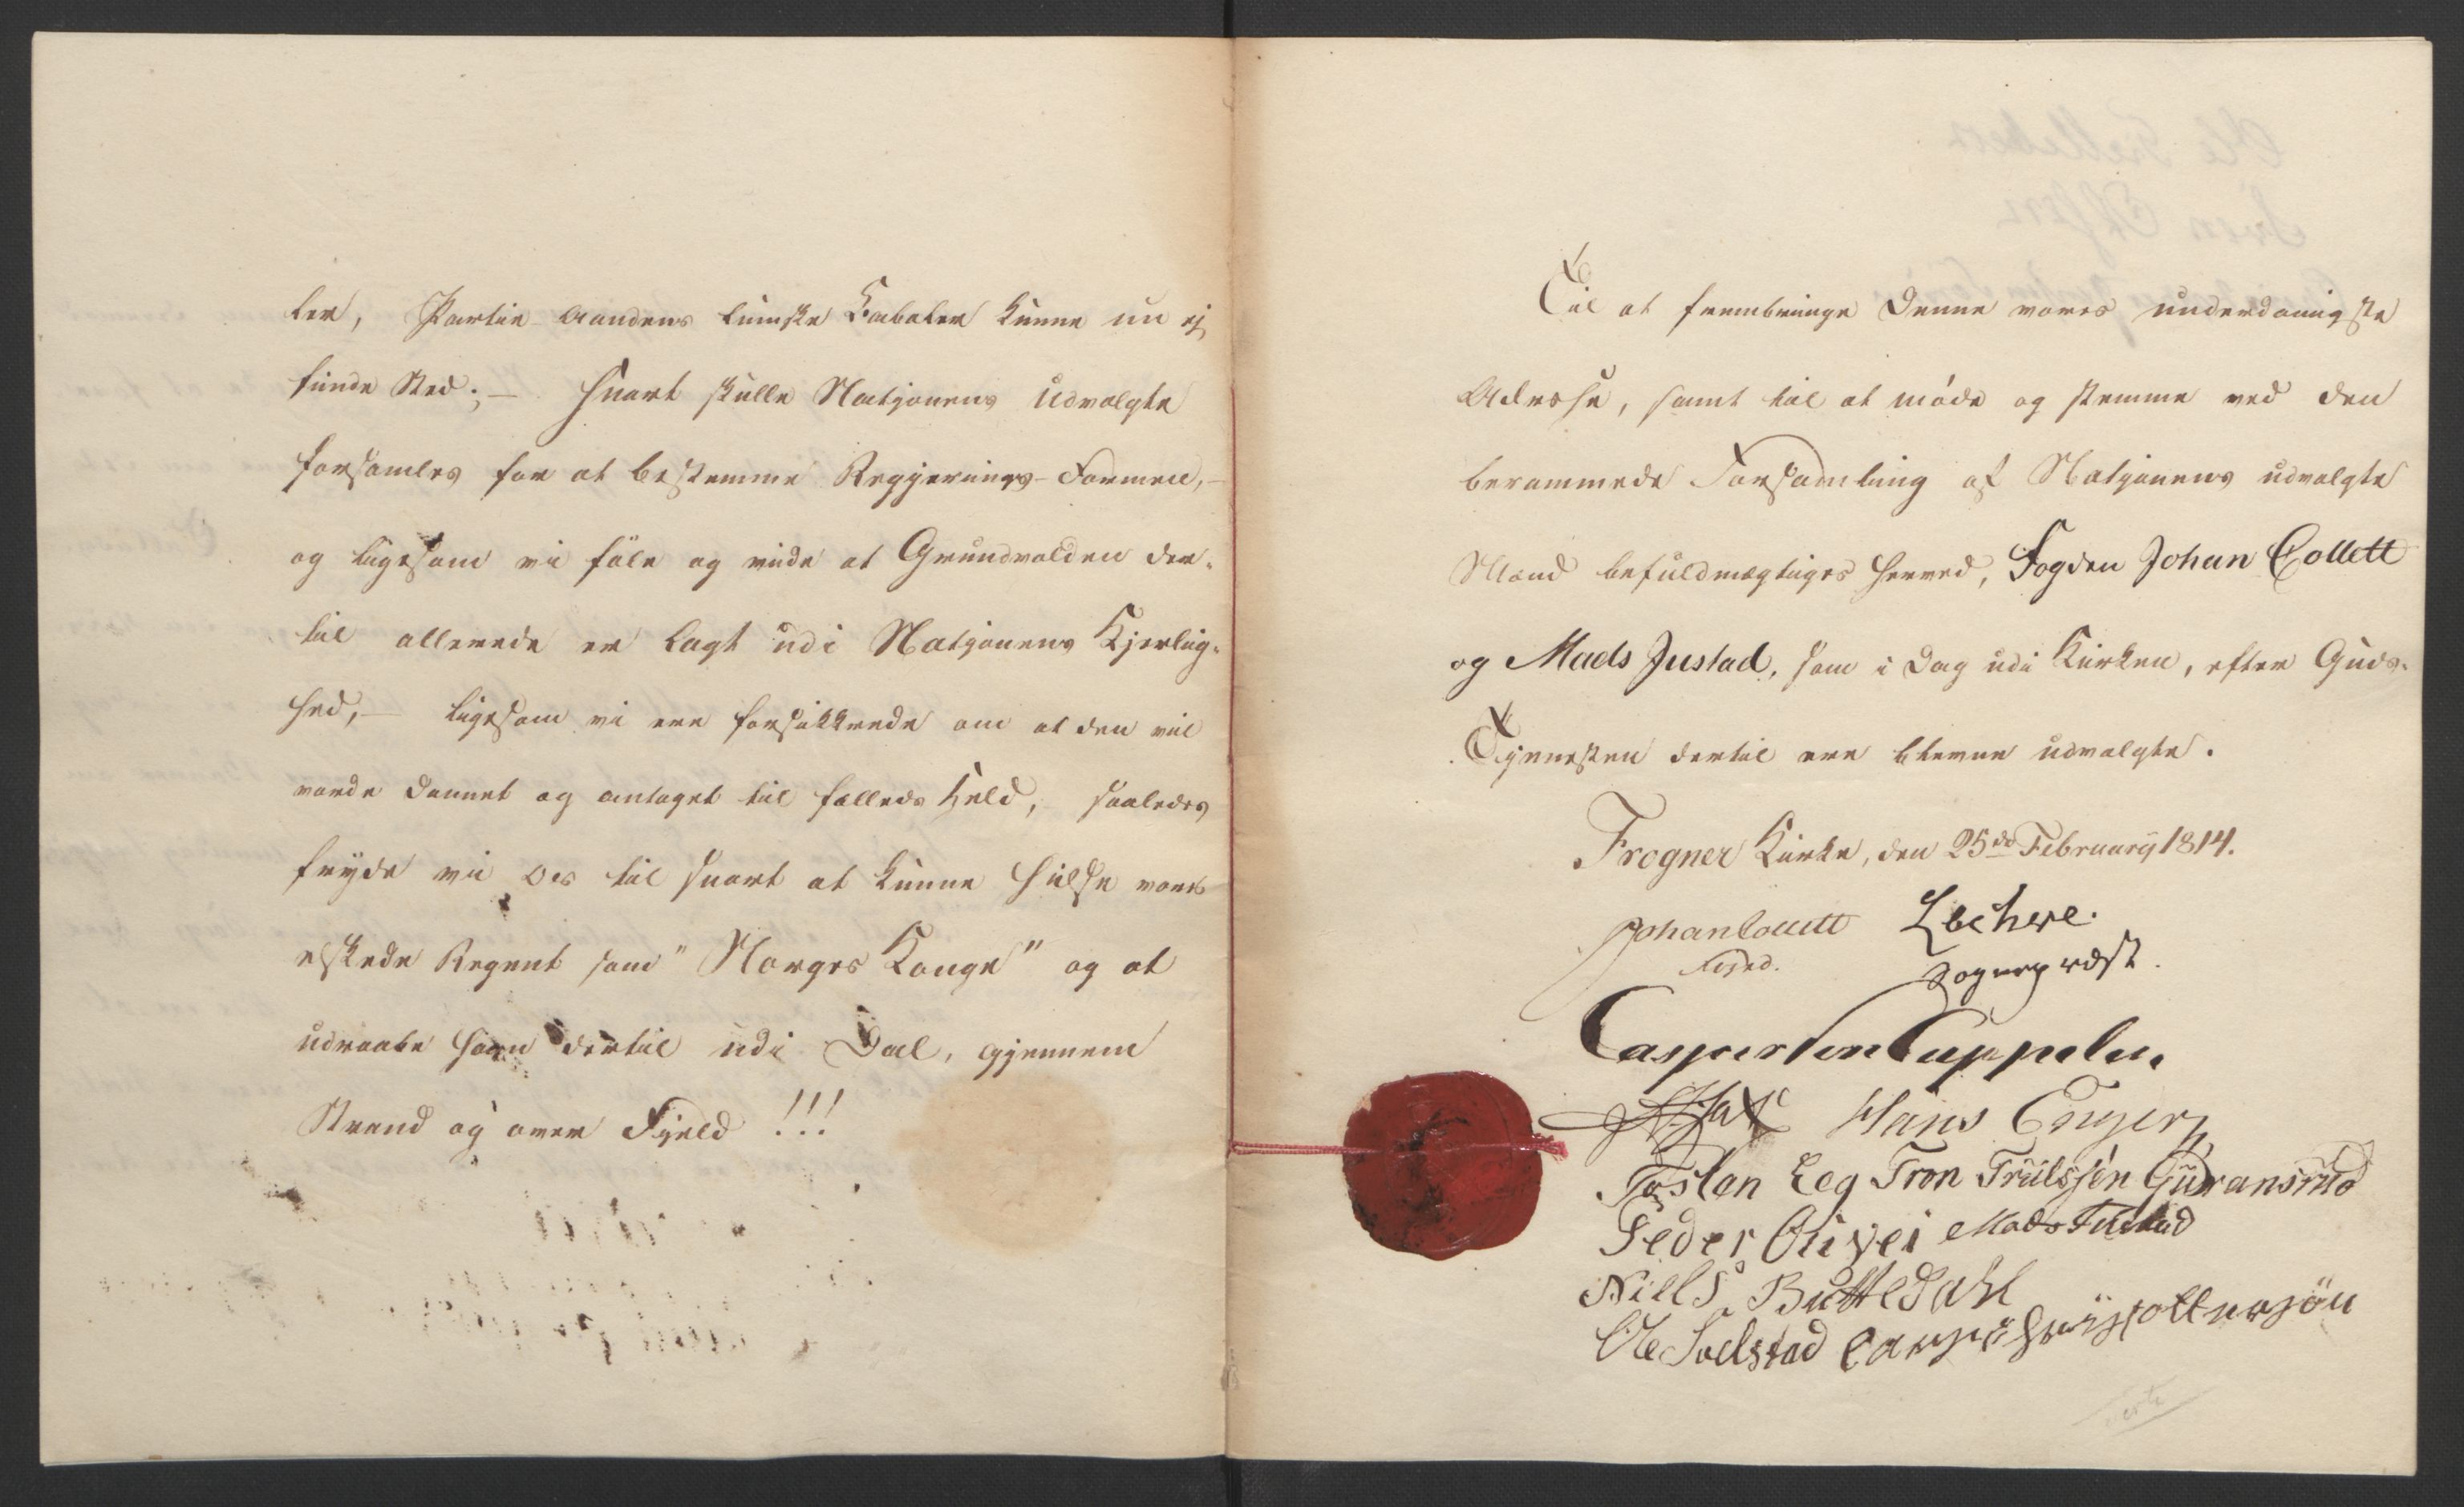 ler, Partie-Aandens lumske Kabaler kunne nu ej
finde Sted; — snart skulle Natjonens Udvalgte
forsamles for at bestemme Regjerings-Formen, —
og ligesom vi føle og vide at Grundvolden der-
til allerede er lagt udi Natjonens Kjerlig-
hed, — ligesom vi ere forsikkrede om at den vil
vorde dannet og antaget til fælleds Held, saaledes
fryde vi os til snart at kunne hilse vores
elskede Regent som "Norges Konge" og at
udraabe ham dertil udi Dal, gjennem
Strand og over Fjeld !!!
Til at frembringe denne vores underdanigste
Adresse, samt til at møde og stemme ved den
berammede Forsamling af Natjonens udvalgte
Mænd befuldmægtiges herved, Fogden Johan Collett
og Mads Justad, som i Dag udi Kirken, efter Guds-
Tjenesten dertil ere blevne udvalgte.
Frogner Kirke, den 25de February 1814.
Johan Collett Lechve.
Foged. Sognepræst.
Casper von Cappelen.
Hans Enger
Tosten Eeg Tron Trülssen Guransrud
Peder Mads Justad
Niels
Ole Solstad
verte